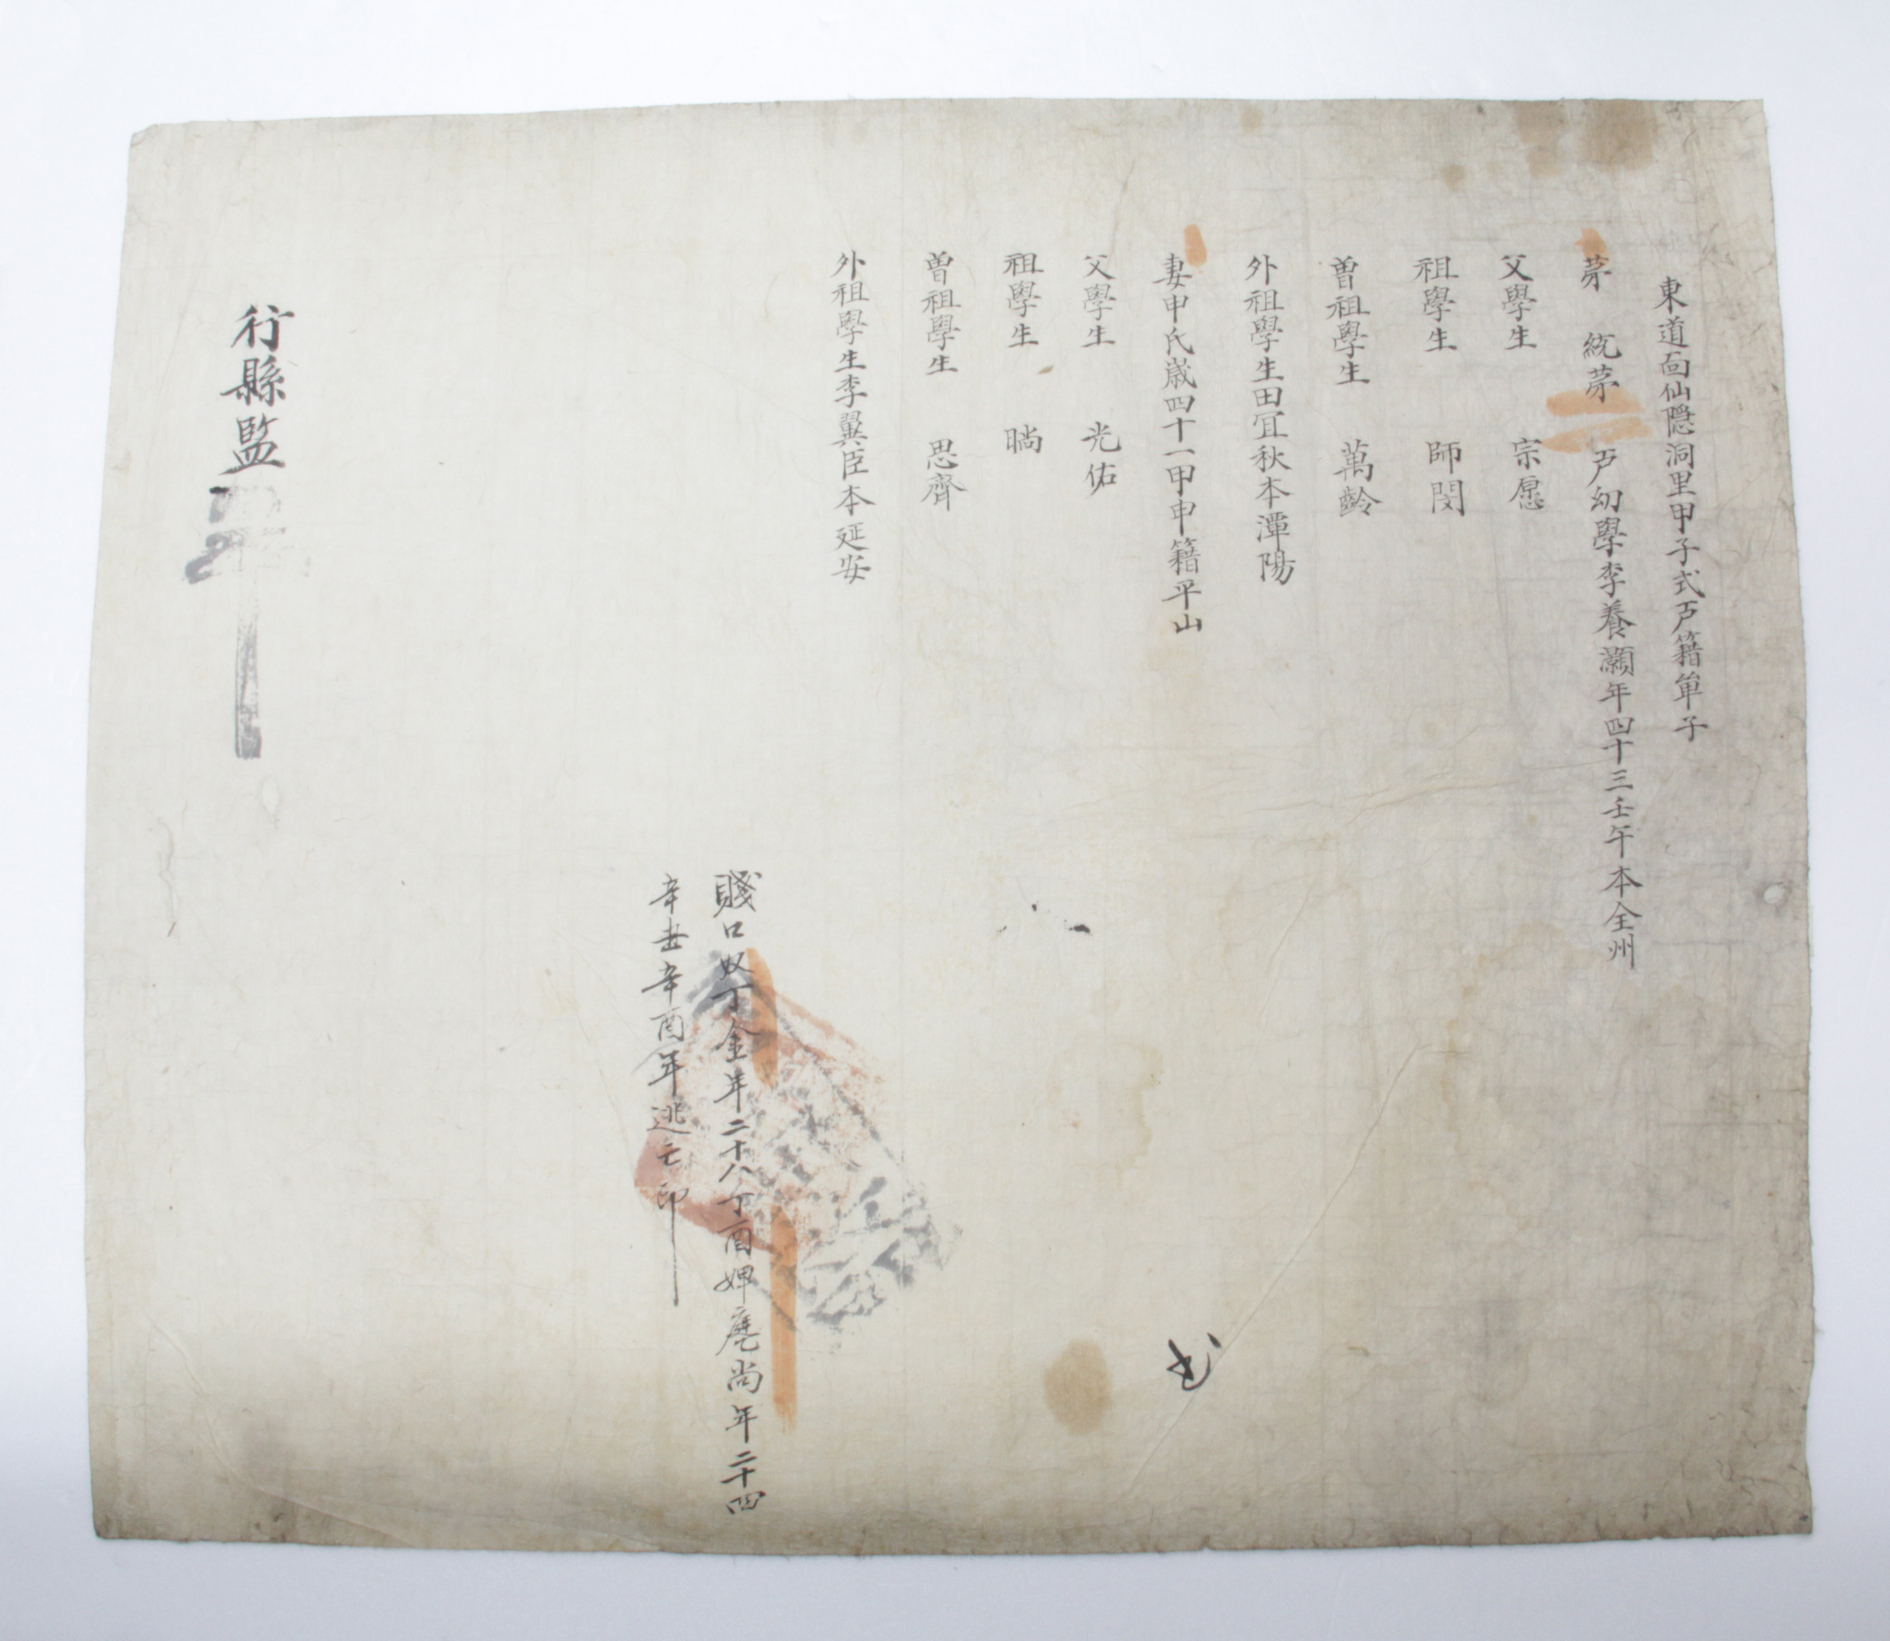 東道面仙隱洞里甲子式戶籍單子
苐 統苐 戶幼學李養灝年四十三壬午本全州
父學生 宗愿
祖學生 師閔
曾祖學生 萬齡
外祖學生田宜秋本潭陽
妻申氏歲四十一甲申籍平山
父學生 光佑
祖學生
曾祖學生 思齊
外祖學生李翼臣本延安
賤口奴丁金年二十八丁酉婢尚年二十四
辛丑辛酉年逃亡印
行縣監